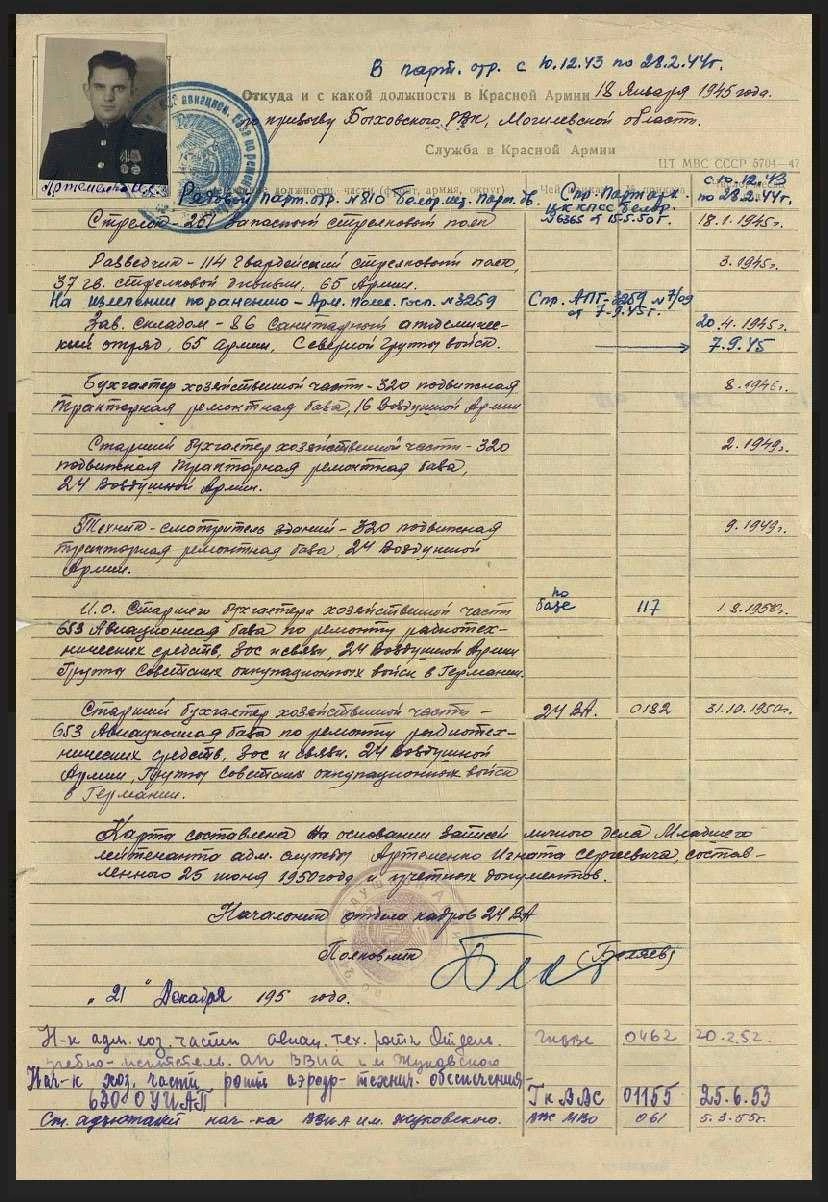 В парт. отр. с 10.12.43 по 28.2.44г.
Откуда и с какой должности в Красной Армии 18 Января 1945 года.
по призыву Быховского РВК, Могилевской области.
Служба в Красной Армии
ЦТ МВС СССР 5704—47
Артеменко И.С.
должности части (фронт, армия, округ)
с 10.12.43
Рядовой парт. отр. №810
Спр. Партарх.
по 28.2.44г.
ЦК КПСС Белор.
Стрелок - 261 запасной стрелковый полк
№6365 от 15.5.50г.
18.1.1945г.
Разведчик - 114 Гвардейский стрелковый полк,
3.1945г.
37 гв. стрелковой дивизии, 65 Армии.
На излечении по ранению - Арм. полев. госп. №3259
Спр. АПГ-3259 №7/09
от 7-9.45г.
Зав. складом - 86 Санитарный
20.4.1945г.
отряд, 65 Армии, Северной Группы войск.
7.9.45
Бухгалтер хозяйственной части - 320 подвижная
8.1946г.
тракторная ремонтная база, 16 Воздушной Армии
Старший бухгалтер хозяйственной части - 320
2.1949г.
подвижная тракторная ремонтная база,
24 Воздушной Армии.
Техник - смотритель зданий - 320 подвижная
9.1949г.
тракторная ремонтная база, 24 Воздушной
Армии.
И.О. Старшего бухгалтера хозяйственной части
по базе
117
1.8.1950г.
653 Авиационная база по ремонту радиотех-
нических средств, Зос и связи, 24 Воздушной Армии
Группы Советских оккупационных войск в Германии.
Старший бухгалтер хозяйственной части -
24 ВА.
0182
31.10.1950г.
653 Авиационная база по ремонту радиотех-
нических средств, Зос и связи. 24 Воздушной
Армии, Группы Советских оккупационных войск
в Германии.
Карта составлена на основании записей личного дела Младшего
лейтенанта адм. службы Артеменко Игната Сергеевича, состав-
ленного 25 июня 1950 года и учетных документов.
Начальник отдела кадров 24 ВА
Полковник
(Беляев)
„21" Декабря 195 года.
Н-к адм. хоз. части авиац. тех. роты Отдель.
0462
20.2.52.
учебно- АП ВВИА им Жуковского
Нач-к хоз. части роты аэродр-технич. обеспечения
Гк ВВС
01155
25.6.53
Ст. адъютант нач-ка ВВИА им. Жуковского.
061
5.3.55г.